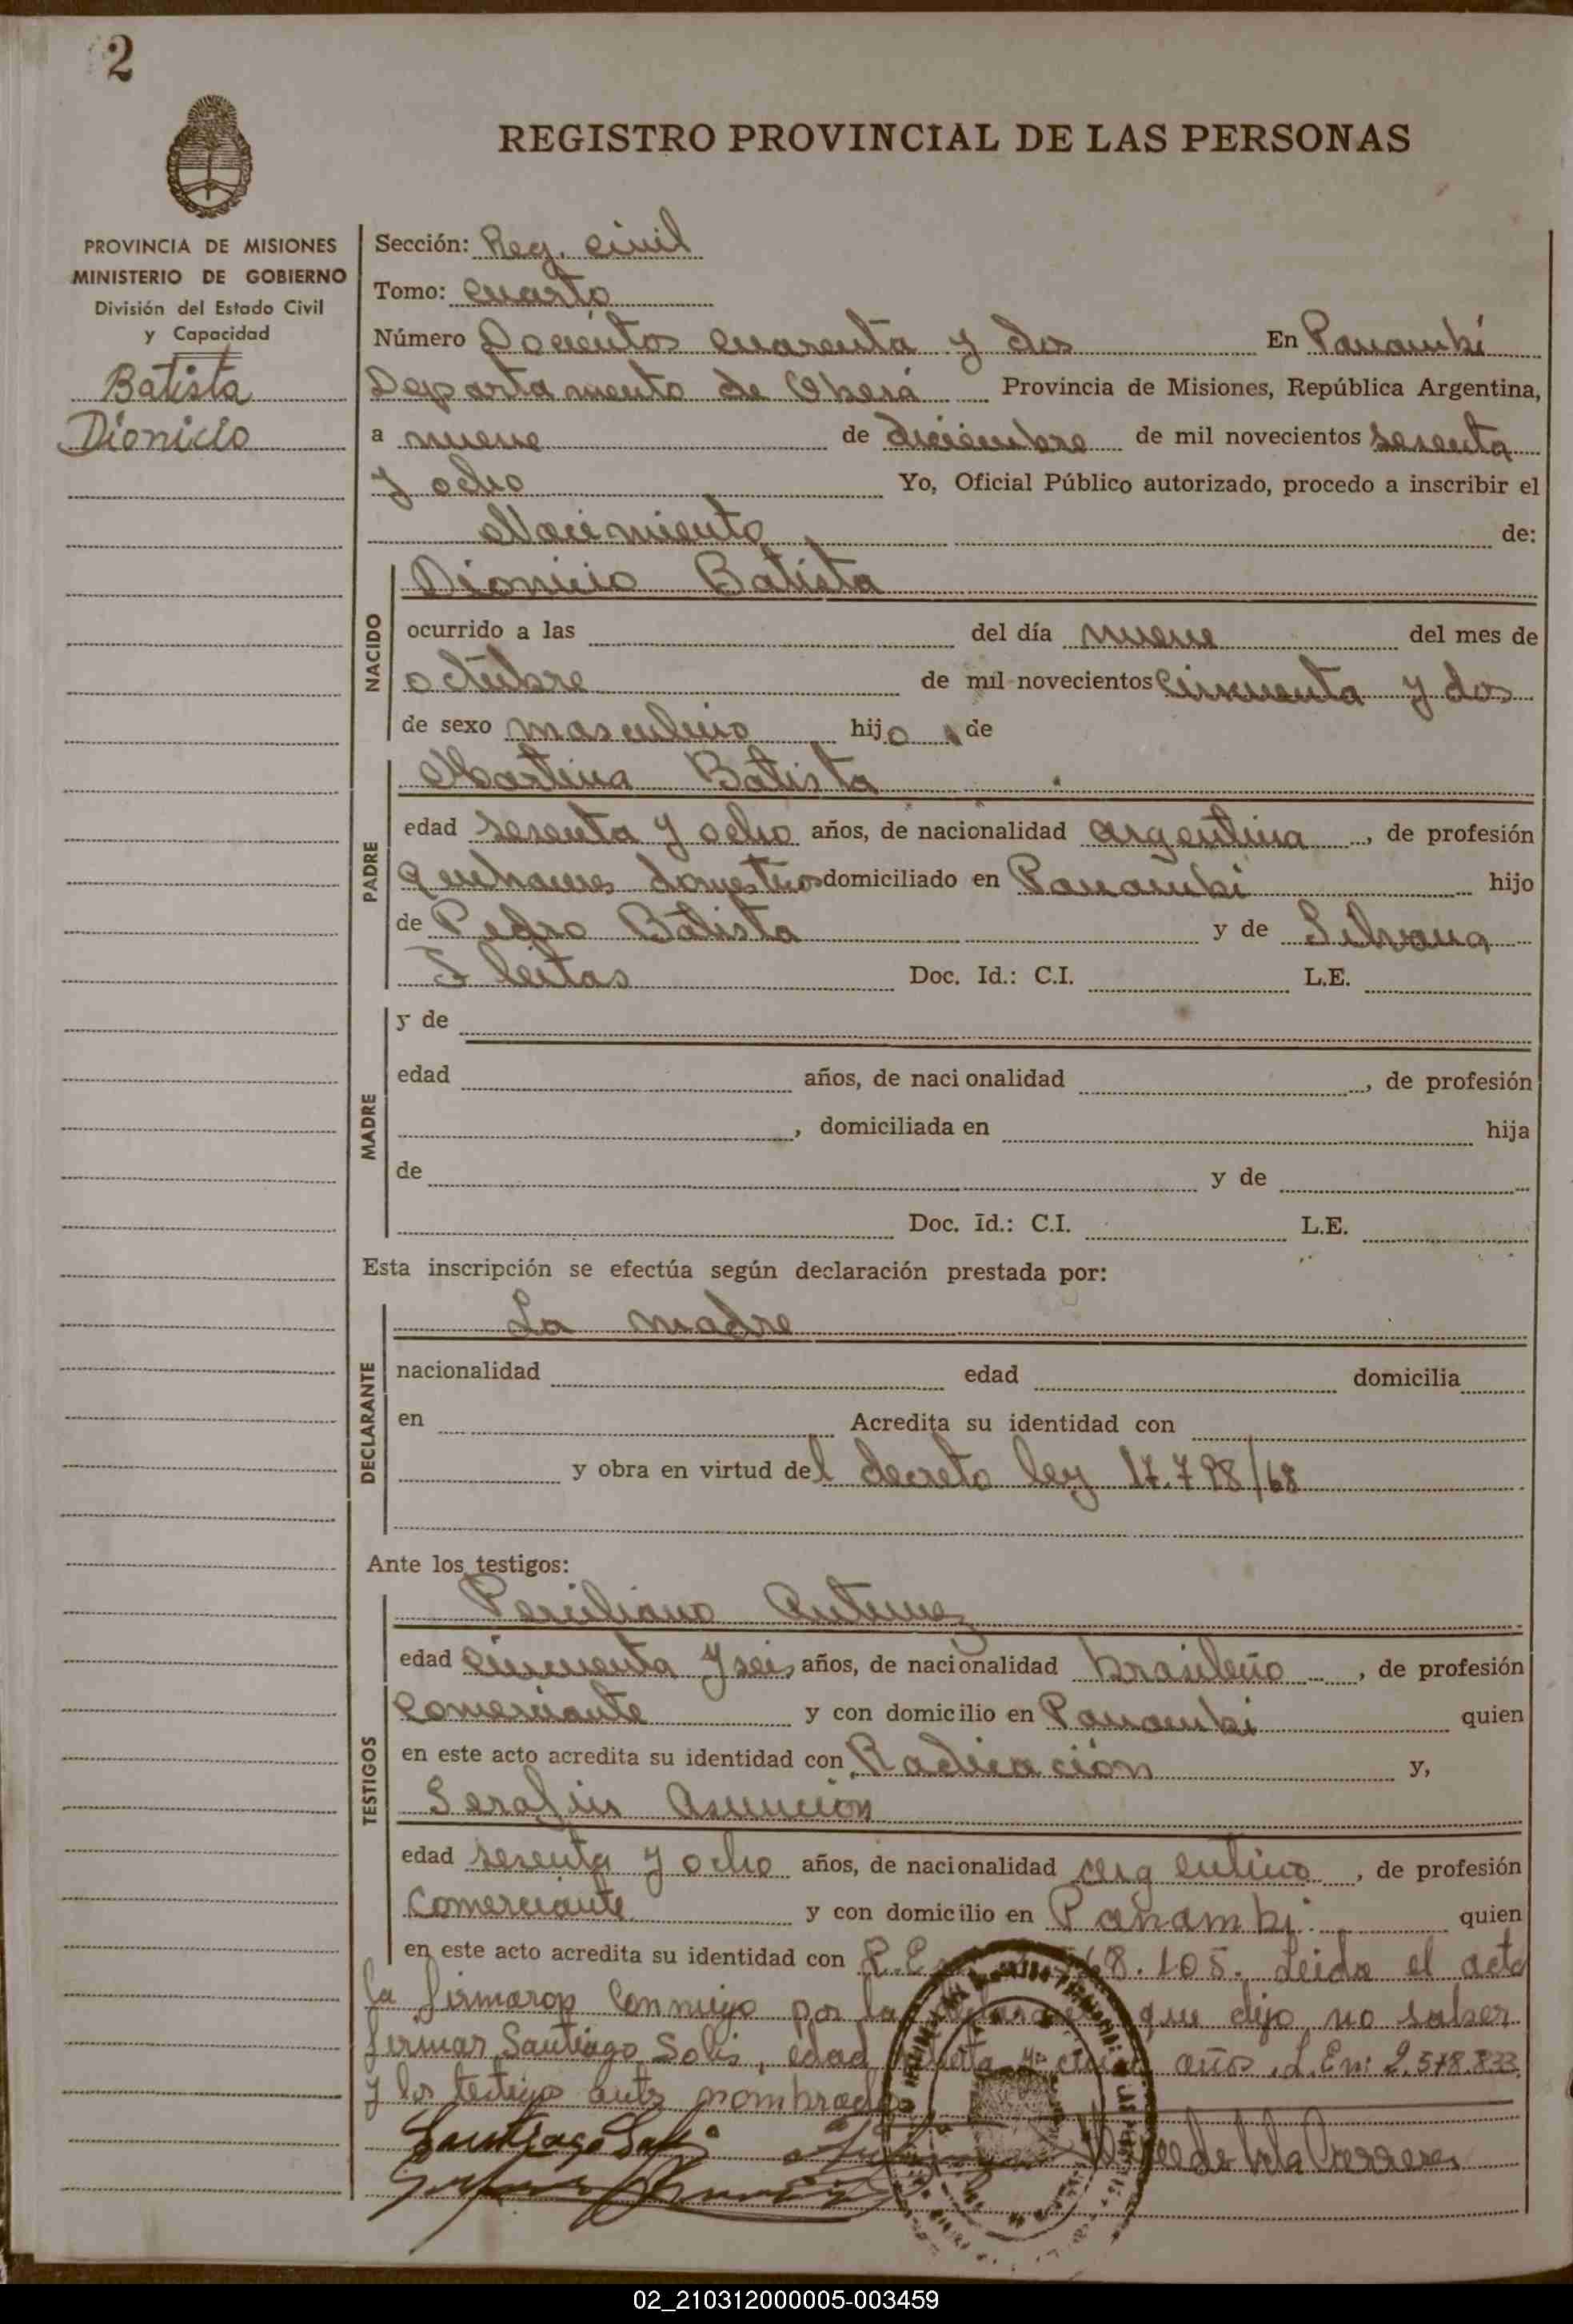 2
REGISTRO PROVINCIAL DE LAS PERSONAS
PROVINCIA DE MISIONES
MINISTERIO DE GOBIERNO
División del Estado Civil
y Capacidad
Batista
Dionicio
Sección: Reg. civil
Tomo: cuarto
Número Docientos cuarenta y dos En Panambi
Departamento de Oberá Provincia de Misiones, República Argentina,
a nueve de diciembre de mil novecientos sesenta
y ocho Yo, Oficial Público autorizado, procedo a inscribir el
Nacimiento de:
NACIDO
Dionicio Batista
ocurrido a las del día nueve del mes de
octubre de mil novecientos cincuenta y dos
de sexo masculino hijo de
PADRE
Martina Batista
edad sesenta y ocho años, de nacionalidad argentina, de profesión
quehaceres domesticos domiciliado en Panambi hijo
de Pedro Batista y de Silvana
Fleitas Doc. Id.: C.I. L.E.
MADRE
y de
edad años, de nacionalidad , de profesión
, domiciliada en hija
de y de
Doc. Id.: C.I. L.E.
Esta inscripción se efectúa según declaración prestada por:
DECLARANTE
La madre
nacionalidad edad domicilia
en Acredita su identidad con
y obra en virtud del decreto ley 17.798/68
Ante los testigos:
TESTIGOS
Perciliano Antunez
edad cincuenta y seis años, de nacionalidad brasileño, de profesión
Comerciante y con domicilio en Panambi quien
en este acto acredita su identidad con Radicación y,
Serafin Asuncion
edad sesenta y ocho años, de nacionalidad argentino, de profesión
Comerciante y con domicilio en Panambi quien
en este acto acredita su identidad con 68.105. Leida el acta
la firmaron conmigo por la que dijo no saber
firmar Santiago Solis, edad y años L.E.n: 2.578.833
y los testigos antes nombrados
Santiago Solis
02_210312000005-003459